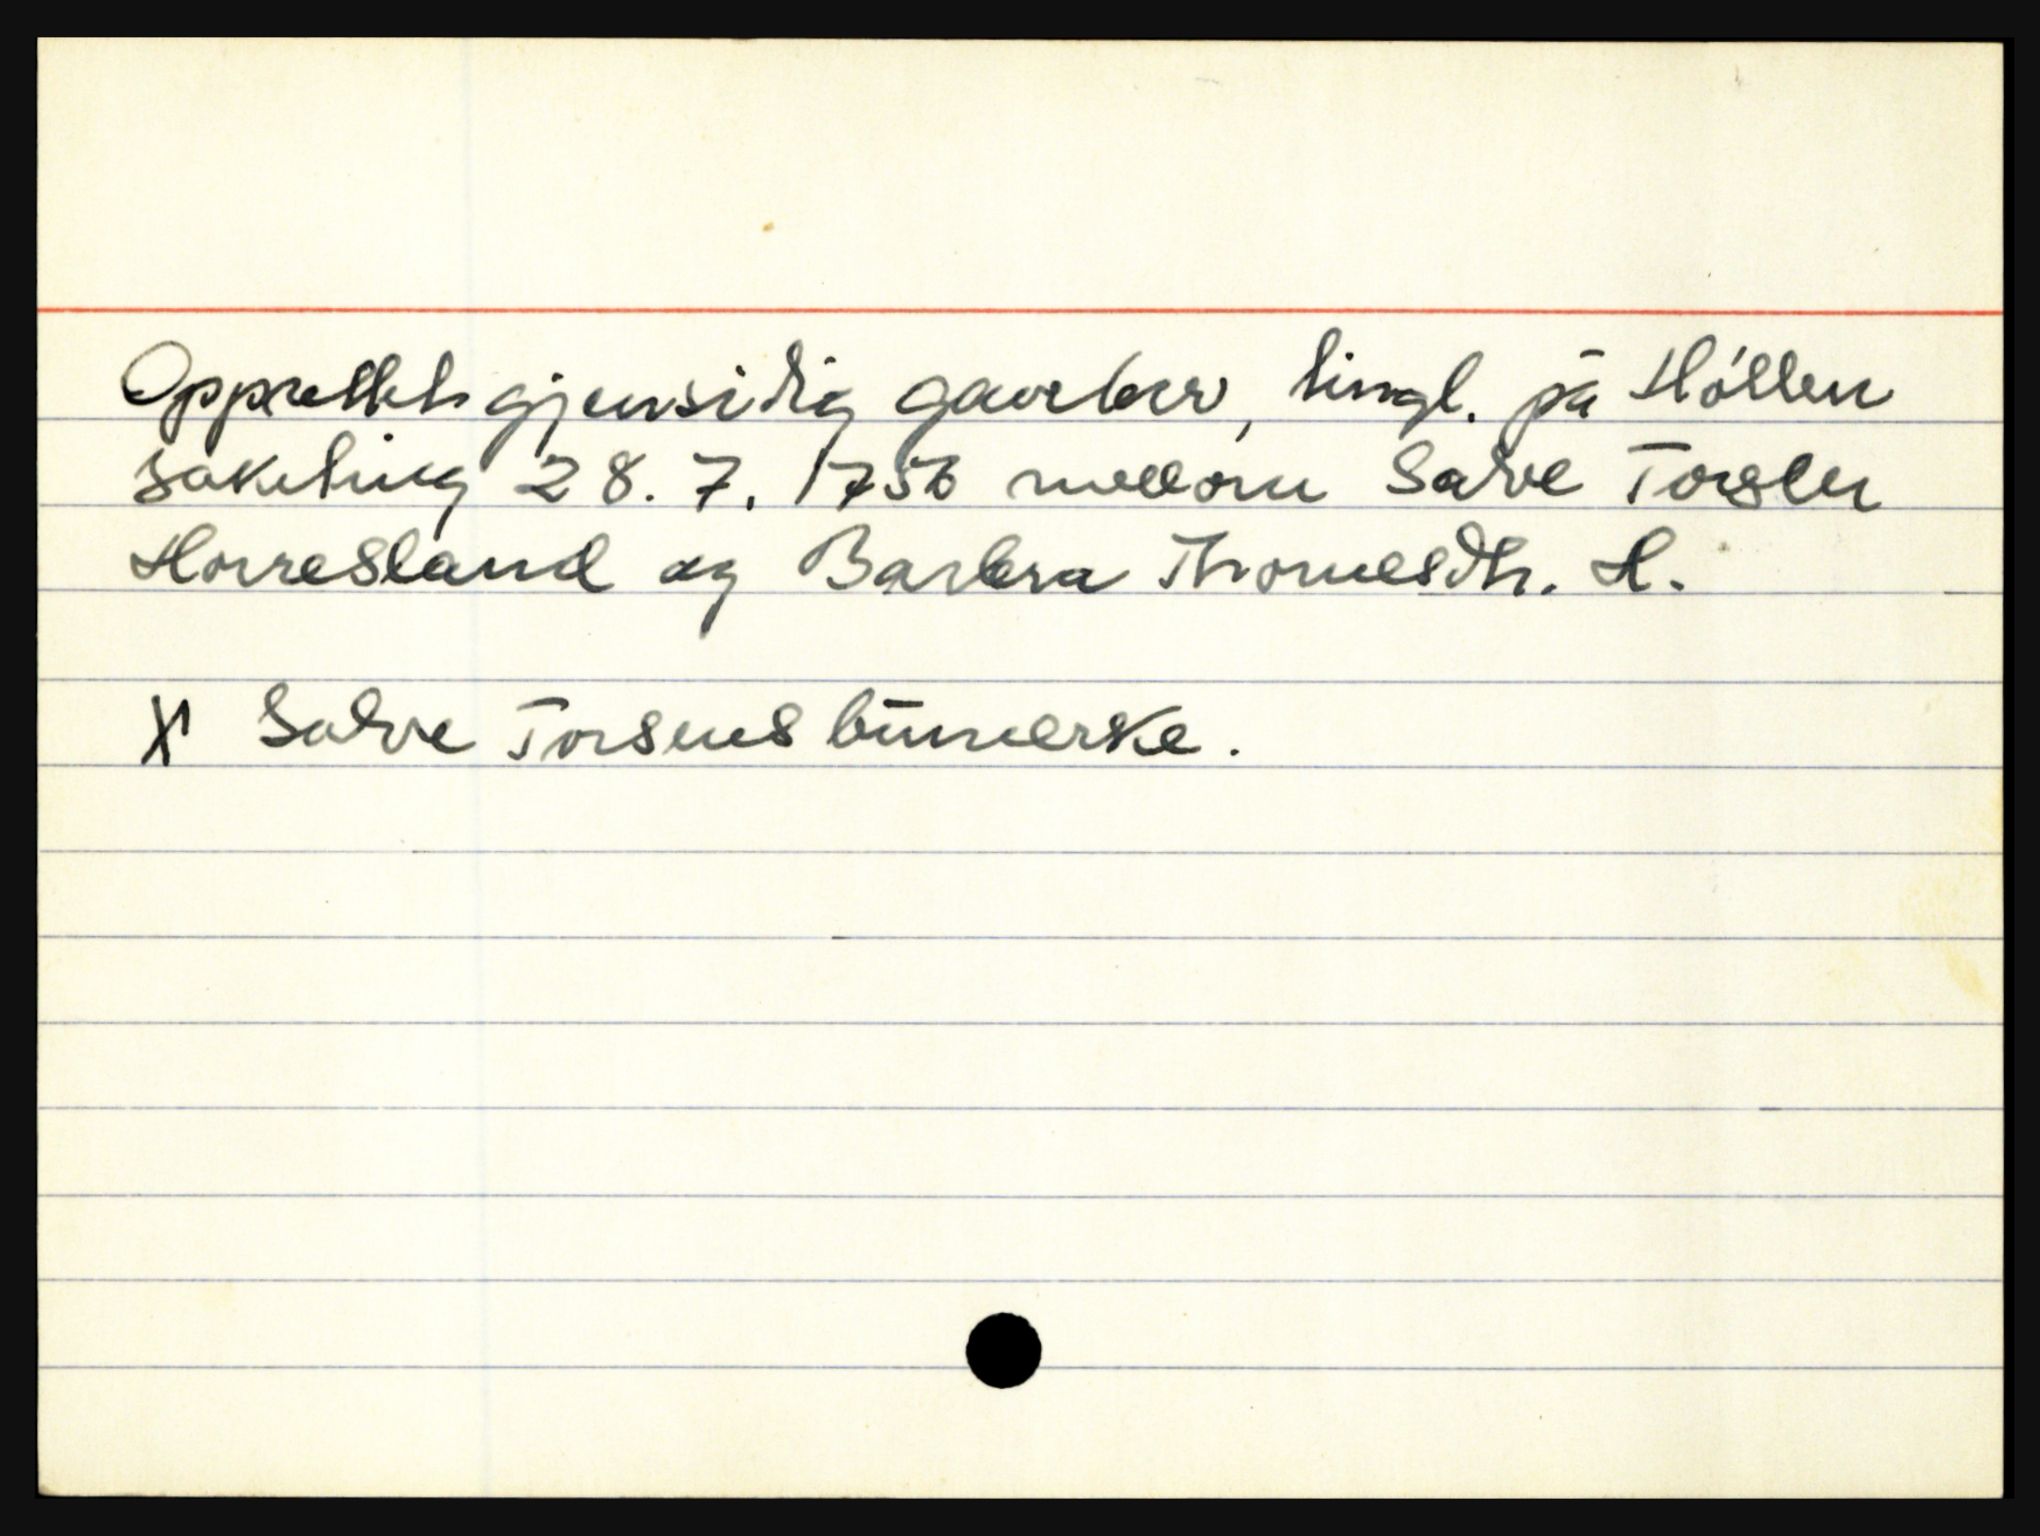 Opprettet gjensidig gavebrev, tingl. på Höllen
saketing 28. 7. 1756 mellom Salve Torsen
Horresland og Barbra Thomesdtr. H.
X Salve Torsens bumerke.